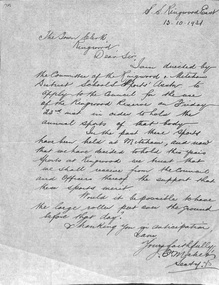 S. S. Ringwood East
13-10-1921
The Town Clerk
Ringwood
Dear Sir
I am directed by
the Committee of the Ringwood & Mitcham
District Schools Sports Assn to
apply to the Council for the use
of the Ringwood Reserve on Friday
in order to hold the
annual sports of that body.
In the past these Sports
have been held at Mitcham, and now
that we have decided to hold this year's
Sports at Ringwood we trust that
we shall receive from the Council
and Officers thereof the support that
then sports merit
Would it be possible to have
the large roller put over the ground
before that day.
Thanking you in anticipation
I am
Yours faithfully